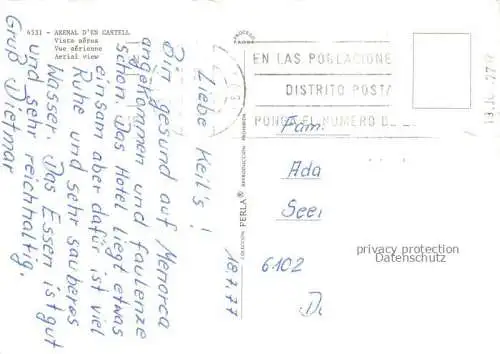 4531 - ARENAL D'EN CASTELL
Vista aérea
Vue aérienne
Aerial view
18.7.77
Liebe Keil's!
Bin gesund auf Menorca
angekommen und faulenze
schon. Das Hotel liegt etwas
einsam aber dafür ist viel
Ruhe und sehr sauberes
Wasser. Das Essen ist gut
und sehr reichhaltig.
Gruß Dietmar
COLECCION PERLA ® REPRODUCCION PROHIBIDA
EN LAS POBLACIONE
DISTRITO POSTA
PONGA EL NUMERO D
Fam
Ada
See
6102
privacy protection
Datenschutz